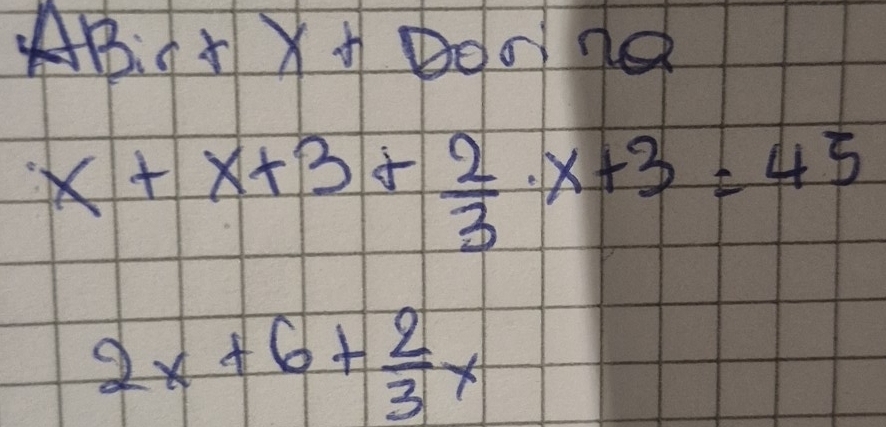 ABir + X + Dorina
x + x+3 + 2/3 · x+3 = 45
2x + 6 + 2/3 x